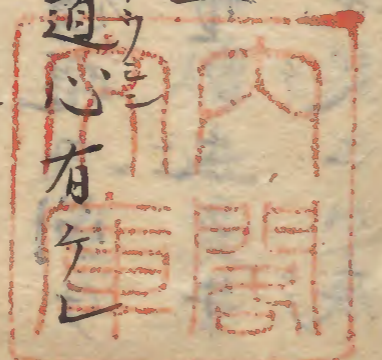 道心有ケレ
内閣
文庫